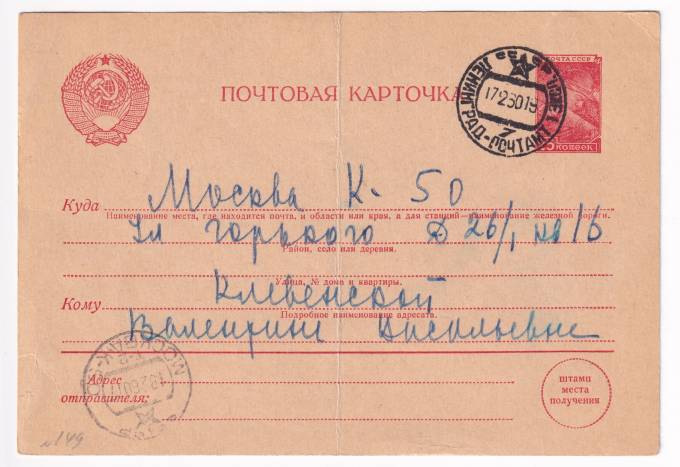 ПОЧТОВАЯ КАРТОЧКА
ПОЧТА СССР
25 КОПЕЕК
ЛЕНИНГРАД-ПОЧТАМТ
1726019
Куда Москва К-50
Наименование места, где находится почта, и области или края, а для станций—наименование железной дороги.
Ул Горького Д 26/1 кв 16
Район, село или деревня.
Улица, № дома и квартиры.
Кому Клевенской
Подробное наименование адресата.
Валентине Васильевне
МОСКВА
Адрес
отправителя:
штамп
места
получения
№149